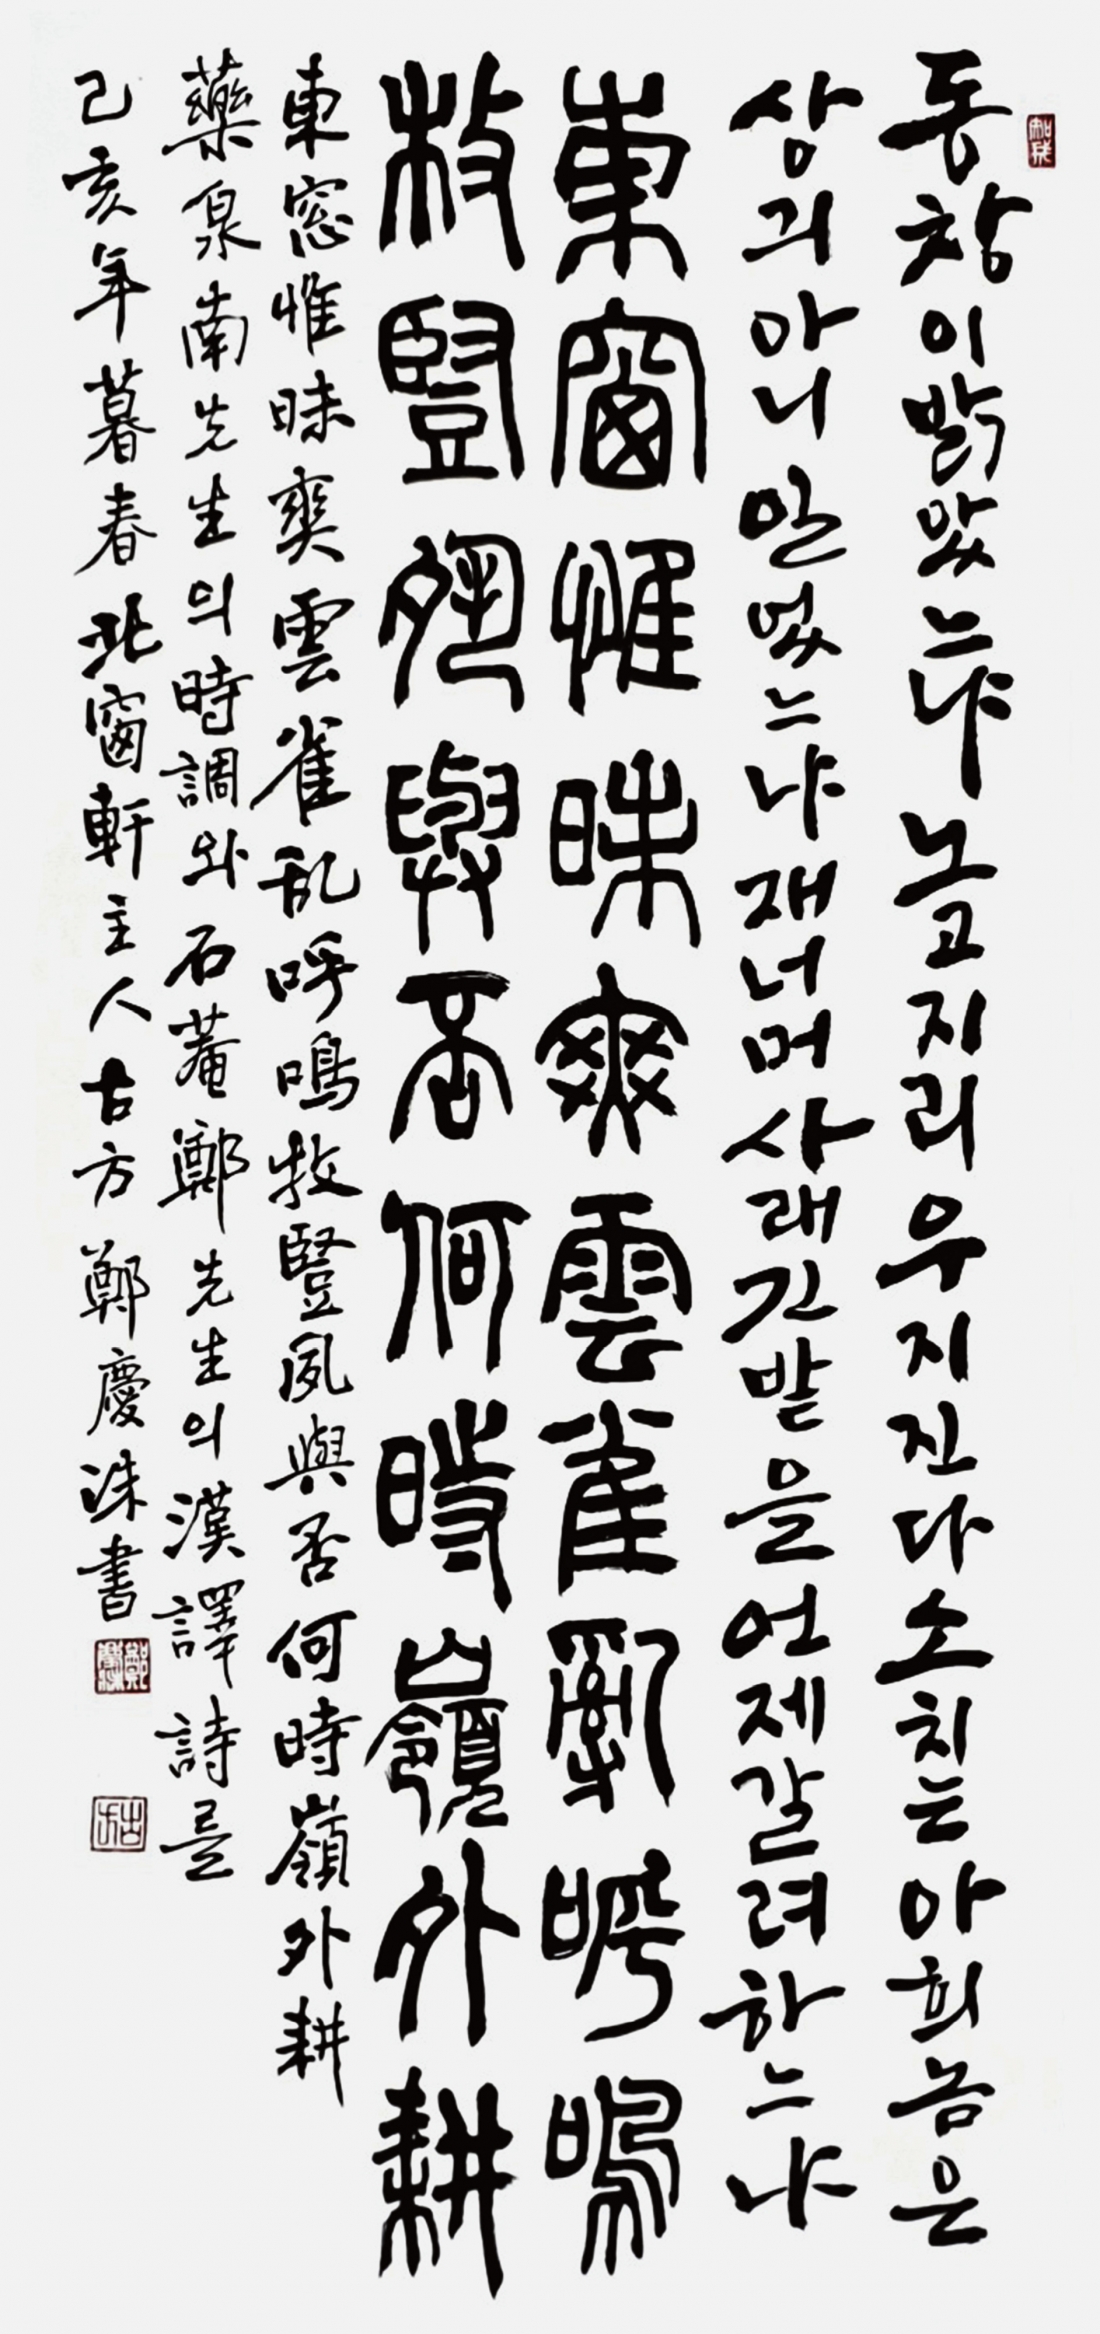 동창이 밝았느냐 노고지리 우지진다 소치는 아희놈은
상긔 아니 일었느냐 재너머 사래긴 밭을 언제 갈려 하느냐
東窗惟昧爽雲雀亂呼鳴
牧豎夙與否何時嶺外耕
東窓惟昧爽雲雀乱呼鳴牧豎夙與否何時嶺外耕
藥泉南先生의 時調와 石菴鄭先生의 漢譯詩를
己亥年暮春北窗軒主人古方鄭慶洙書
古方